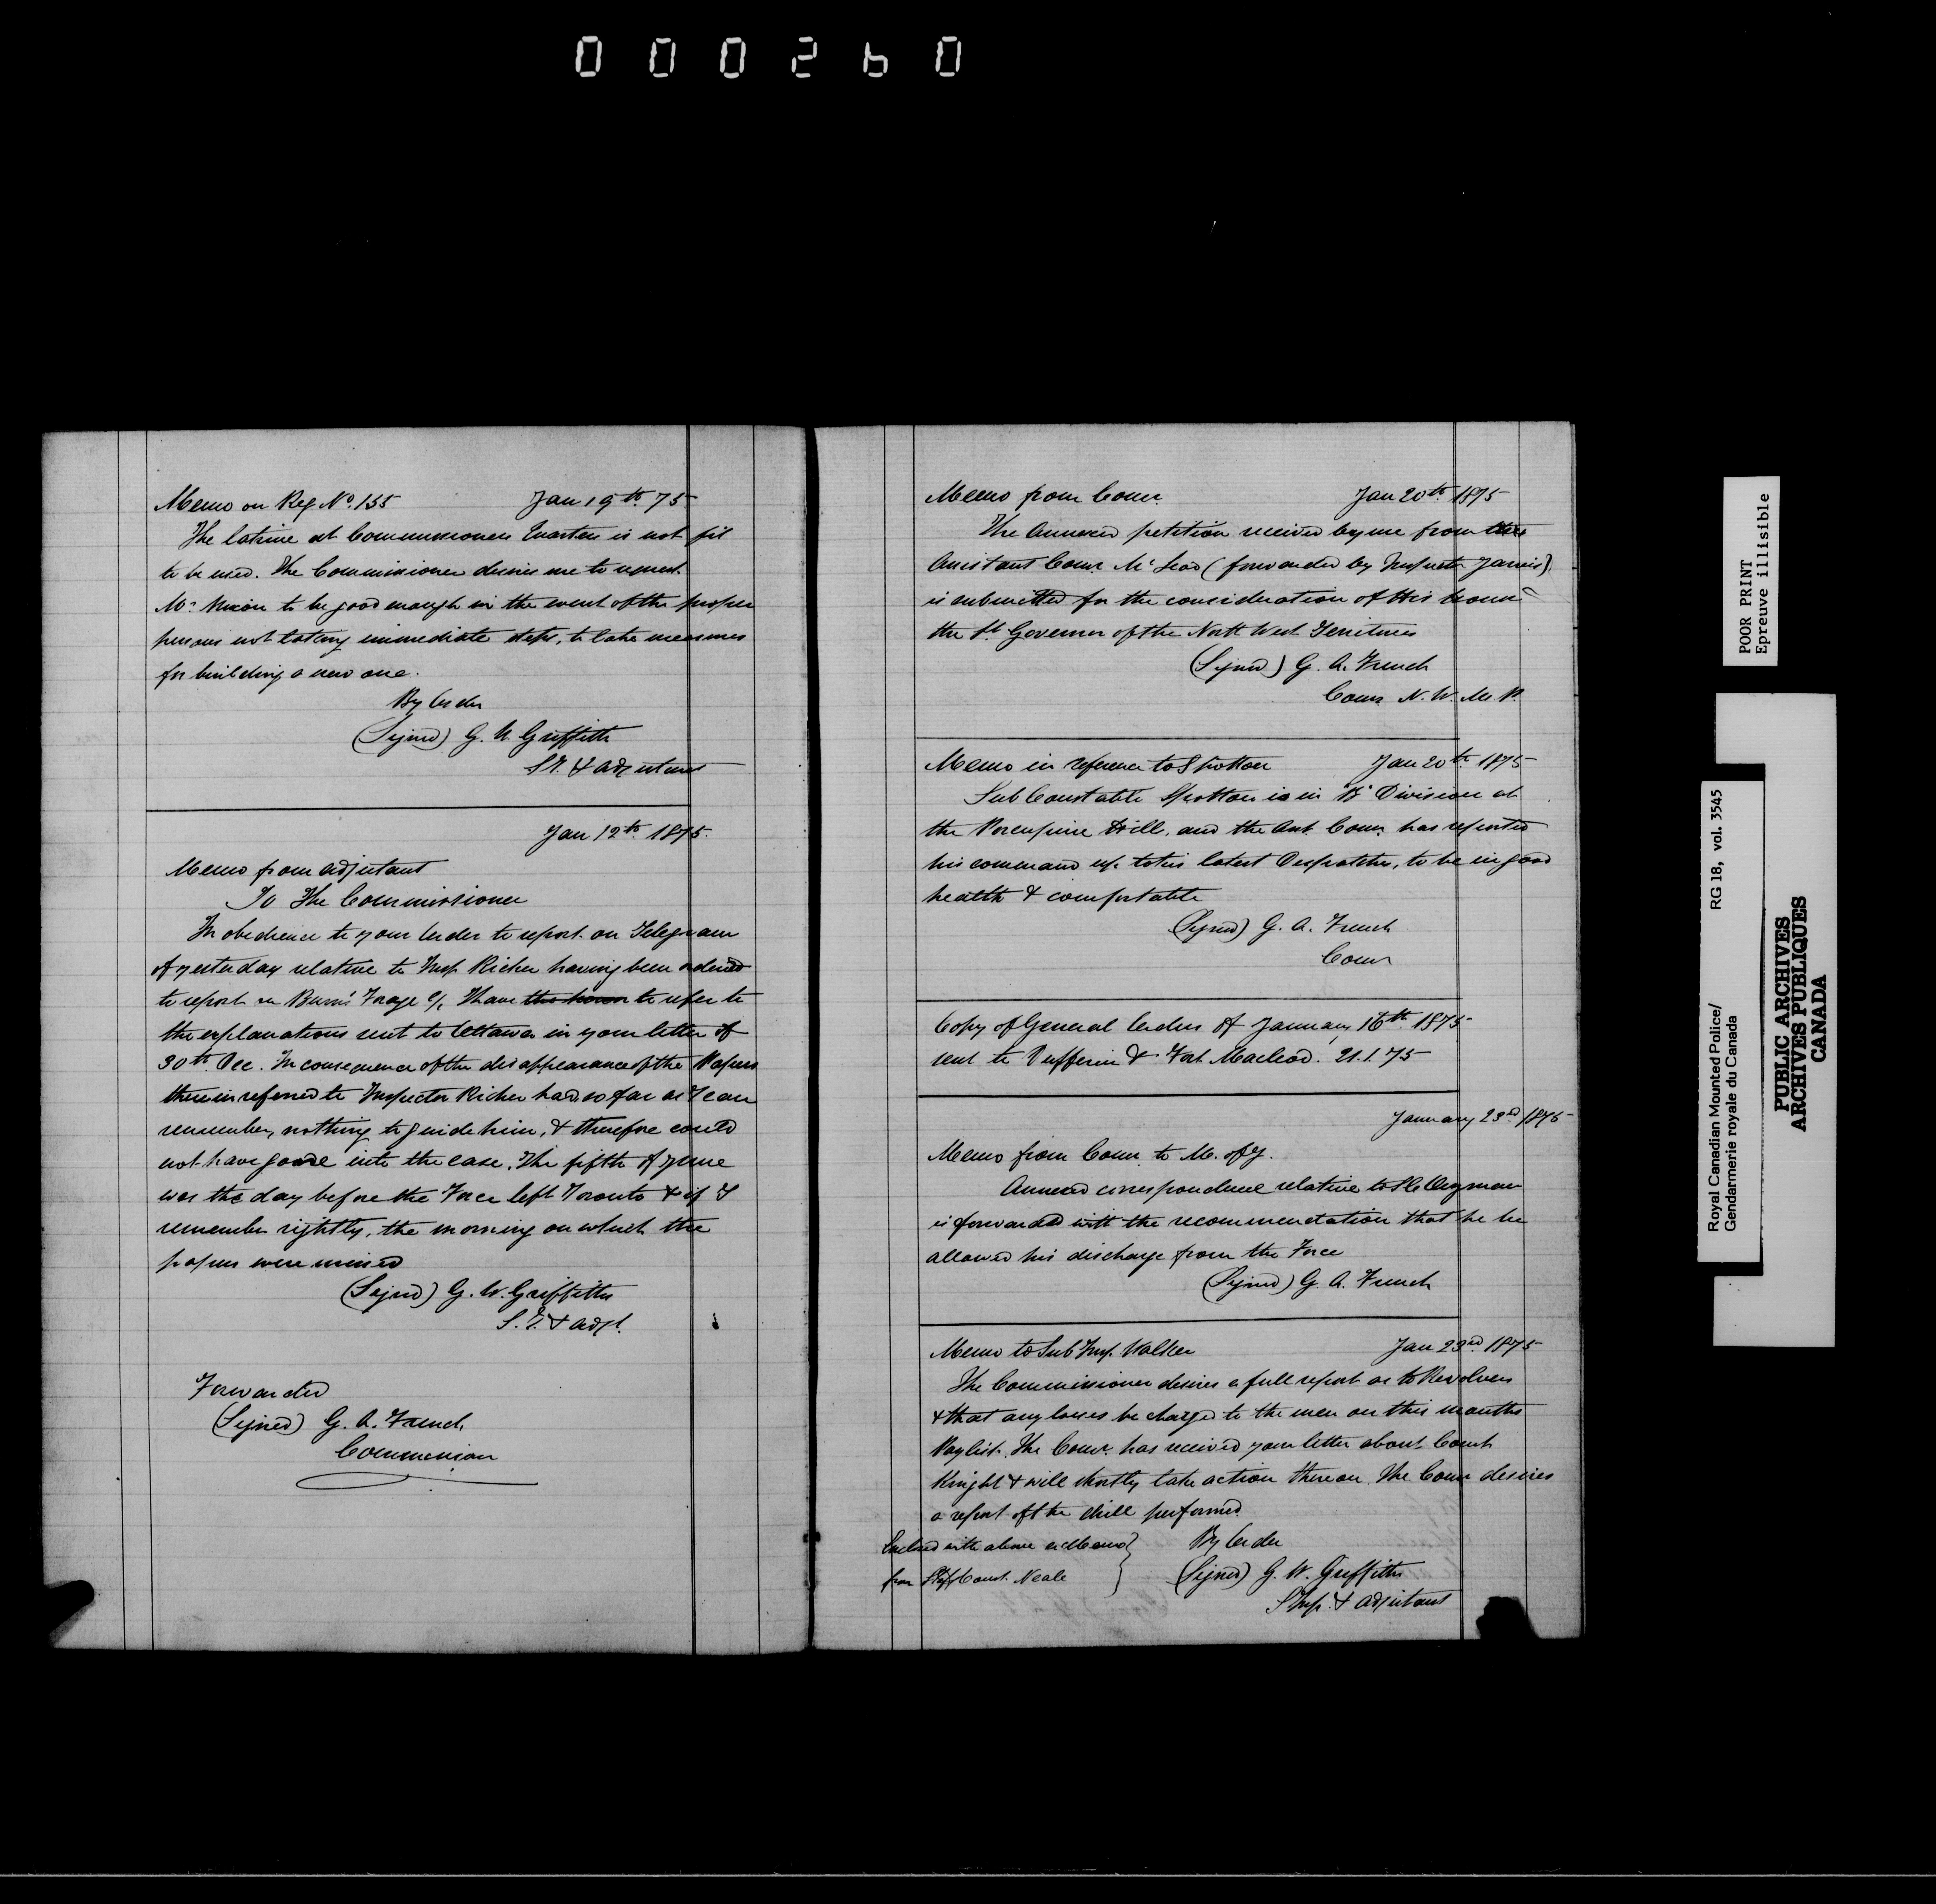 000260
Memo on Reg No. 135 Jan 19th 75
The latrine at Commissioners Quarters is not fit
to be used. The Commissioner desires me to request
Mr Nixon to be good enough in the event of the proper
persons not taking immediate steps, to take measures
for building a new one.
By Order
(Signed) G. W. Griffith
S.I. & Adjutant
Jan 12th 1875.
Memo from Adjutant
To The Commissioner
In obedience to your Order to report on Telegram
of yesterday relative to Insp. Richer having been ordered
to report on Burns' Forage a/c I have the honor to refer to
the explanations sent to Ottawa in your letter of
30th Dec. In consequence of the disappearance of the Papers
therein referred to Inspector Richer had so far as I can
remember, nothing to guide him, & therefore could
not have gone into the case. The fifth of June
was the day before the Force left Toronto & if I
remember rightly, the morning on which the
papers were missed
(Signed) G. W. Griffiths
S.I. & Adjt.
Forwarded
(Signed) G. A. French
Commission
Memo from Comr. Jan 20th 1875
The Annexed petition received by me from the
Assistant Comr. McLeod (forwarded by Inspector Jarvis)
is submitted for the consideration of His
the Lt. Governor of the North West Territories
(Signed) G. A. French
Comr N. W. M. P.
Memo in reference to Spotton Jan 20th 1875
Sub Constable Spotton is in Division at
the Porcupine Hills, and the Ast. Comr. has reported
his command up to his latest Despatches, to be in good
health & comfortable
(Signed) G. A. French
Comr
Copy of General Orders of January 16th 1875
sent to Dufferin & Fort Macleod. 21.1.75
January 23rd 1875
Memo from Comr. to M. of J.
Annexed correspondence relative to
is forwarded with the recommendation that he be
allowed his discharge from the Force
(Signed) G. A. French
Memo to Sub Insp. Walker Jan 23rd 1875
The Commissioner desires a full report as to Revolvers
& that any losses be charged to the men on this months
Paylist. The Comr. has received your letter about Const.
Knight & will shortly take action thereon. The Comr desires
a report of the drill performed.
Enclosed with above a Memo By Order
from Staff Const. Neale (Signed) G. W. Griffiths
S Insp. & Adjutant
POOR PRINT
Epreuve illisible
Royal Canadian Mounted Police/ RG 18, vol. 3545
Gendarmerie royale du Canada
PUBLIC ARCHIVES
ARCHIVES PUBLIQUES
CANADA